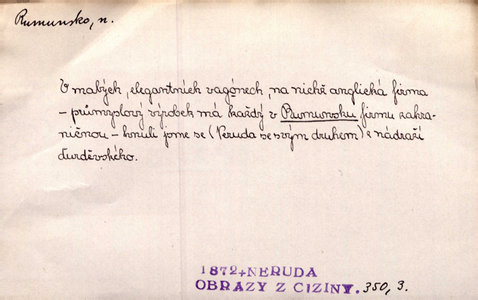 Rumunsko, n.
V malých, elegantních vagónech, na nichž anglická firma
– průmyslový výrobek má každý v Rumunsku firmu zahra-
ničnou – hnuli jsme se (Neruda se svým druhem) z nádraží
ďurďěvského.
1872+NERUDA
OBRAZY Z CIZINY. 350, 3.